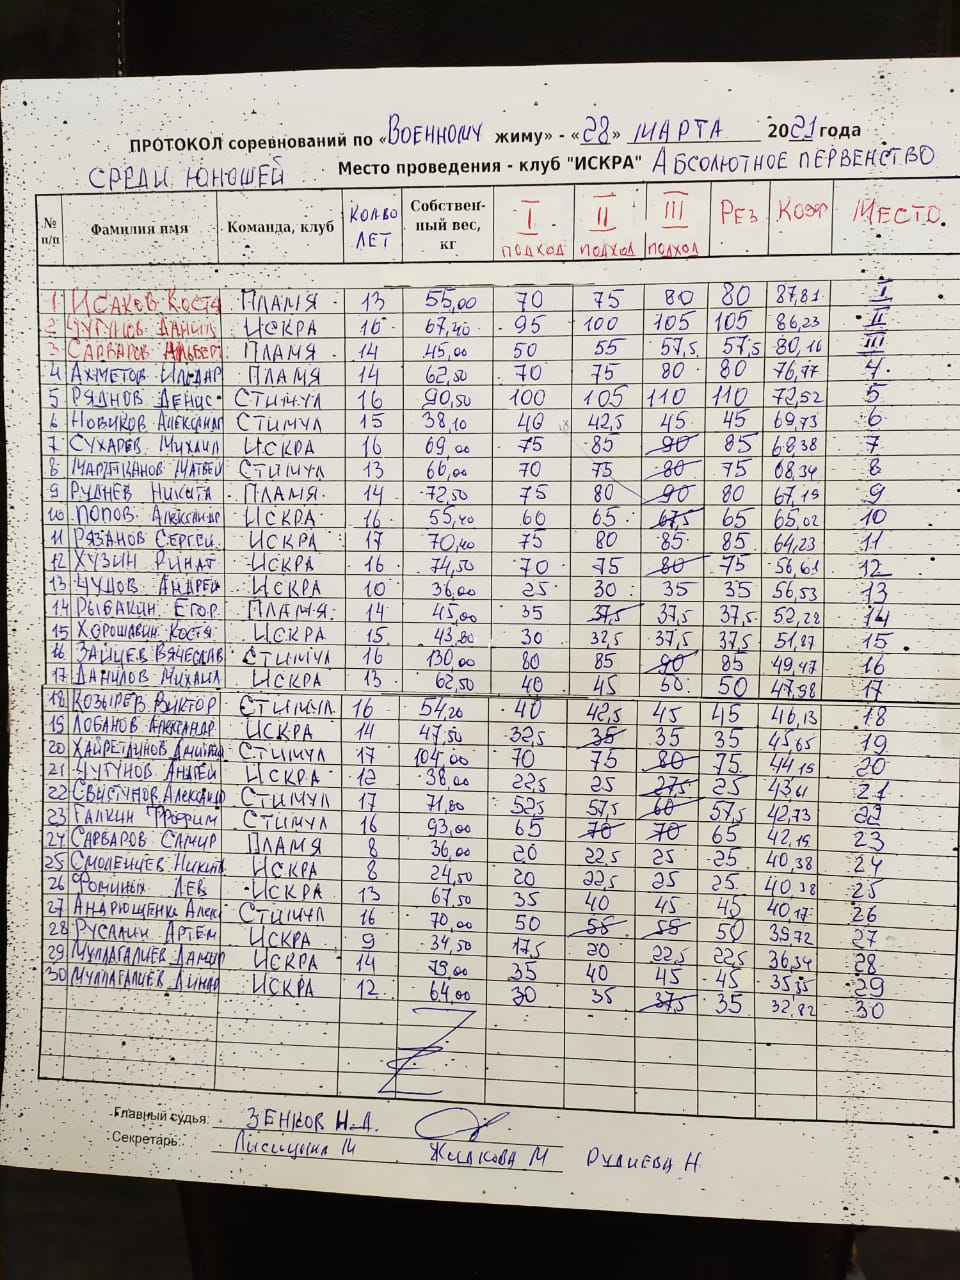 ПРОТОКОЛ соревнований по «ВОЕННОМУ жиму» - «28» МАРТА 2021 года
СРЕДИ ЮНОШЕЙ Место проведения - клуб "ИСКРА" АБСОЛЮТНОЕ ПЕРВЕНСТВО
№ п/п Фамилия имя Команда, клуб КОЛ-ВО ЛЕТ Собствен-ный вес, кг I ПОДХОД II ПОДХОД III ПОДХОД РЕЗ КОЭФ МЕСТО
1 ИСАКОВ КОСТЯ ПЛАМЯ 13 55,00 70 75 80 80 87,81 I
2 ЧУГУНОВ ДАНИИЛ ИСКРА 16 67,40 95 100 105 105 86,23 II
3 САРВАРОВ АЛЬБЕРТ ПЛАМЯ 14 45,00 50 55 57,5 57,5 80,16 III
4 АХМЕТОВ ИЛЬДАР ПЛАМЯ 14 62,50 70 75 80 80 76,77 4
5 РЯДНОВ ДЕНИС СТИМУЛ 16 90,50 100 105 110 110 72,52 5
6 НОВИКОВ АЛЕКСАНДР СТИМУЛ 15 38,10 40 42,5 45 45 69,73 6
7 СУХАРЕВ МИХАИЛ ИСКРА 16 69,00 75 85 90 85 68,38 7
8 МАРТЮАНОВ МАТВЕЙ СТИМУЛ 13 66,00 70 75 80 75 68,34 8
9 РУДНЕВ НИКИТА ПЛАМЯ 14 72,50 75 80 90 80 67,19 9
10 ПОПОВ АЛЕКСАНДР ИСКРА 16 55,40 60 65 67,5 65 65,02 10
11 РЯЗАНОВ СЕРГЕЙ ИСКРА 17 70,40 75 80 85 85 64,23 11
12 ХУЗИН РИНАТ ИСКРА 16 74,50 70 75 80 75 56,61 12
13 ЧУДОВ АНДРЕЙ ИСКРА 10 36,00 25 30 35 35 56,53 13
14 РЫБАКИН ЕГОР ПЛАМЯ 14 45,00 35 37,5 37,5 37,5 52,28 14
15 ХОРОШАВИН КОСТЯ ИСКРА 15 43,80 30 32,5 37,5 37,5 51,87 15
16 ЗАЙЦЕВ ВЯЧЕСЛАВ СТИМУЛ 16 130,00 80 85 90 85 49,47 16
17 ДАНИЛОВ МИХАИЛ ИСКРА 13 62,50 40 45 50 50 47,98 17
18 КОЗЫРЕВ ВИКТОР СТИМУЛ 16 54,20 40 42,5 45 45 46,13 18
19 ЛОБАНОВ АЛЕКСАНДР ИСКРА 14 47,50 32,5 35 35 35 45,65 19
20 ХАЙРЕТДИНОВ СТИМУЛ 17 104,00 70 75 80 75 44,15 20
21 ЧУГУНОВ АНДРЕЙ ИСКРА 12 38,00 22,5 25 27,5 25 43,11 21
22 СВИСТУНОВ АЛЕКСАНДР СТИМУЛ 17 71,80 52,5 57,5 60 57,5 42,73 22
23 ГАЛКИН ТРОФИМ СТИМУЛ 16 93,00 65 70 70 65 42,15 23
24 САРВАРОВ САМИР ПЛАМЯ 8 36,00 20 22,5 25 25 40,38 24
25 СМОЛЕНЦЕВ НИКИТА ИСКРА 8 24,50 20 22,5 25 25 40,38 25
26 ФОМИНЫХ ЛЕВ ИСКРА 13 67,50 35 40 45 45 40,17 26
27 АНДРЮЩЕНКО АЛЕКС СТИМУЛ 16 70,00 50 55 55 50 39,72 27
28 РУСАЛИН АРТЁМ ИСКРА 9 34,50 17,5 20 22,5 22,5 36,54 28
29 МУЛЛАГАЛИЕВ ДАМИР ИСКРА 14 79,00 35 40 45 45 35,55 29
30 МУЛЛАГАЛИЕВ ДИНАР ИСКРА 12 64,00 30 35 37,5 35 32,82 30
Главный судья: ЗЕНКОВ Н.А.
Секретарь: Лисицына М ЖИЛКОВА М РУДИЕВА Н